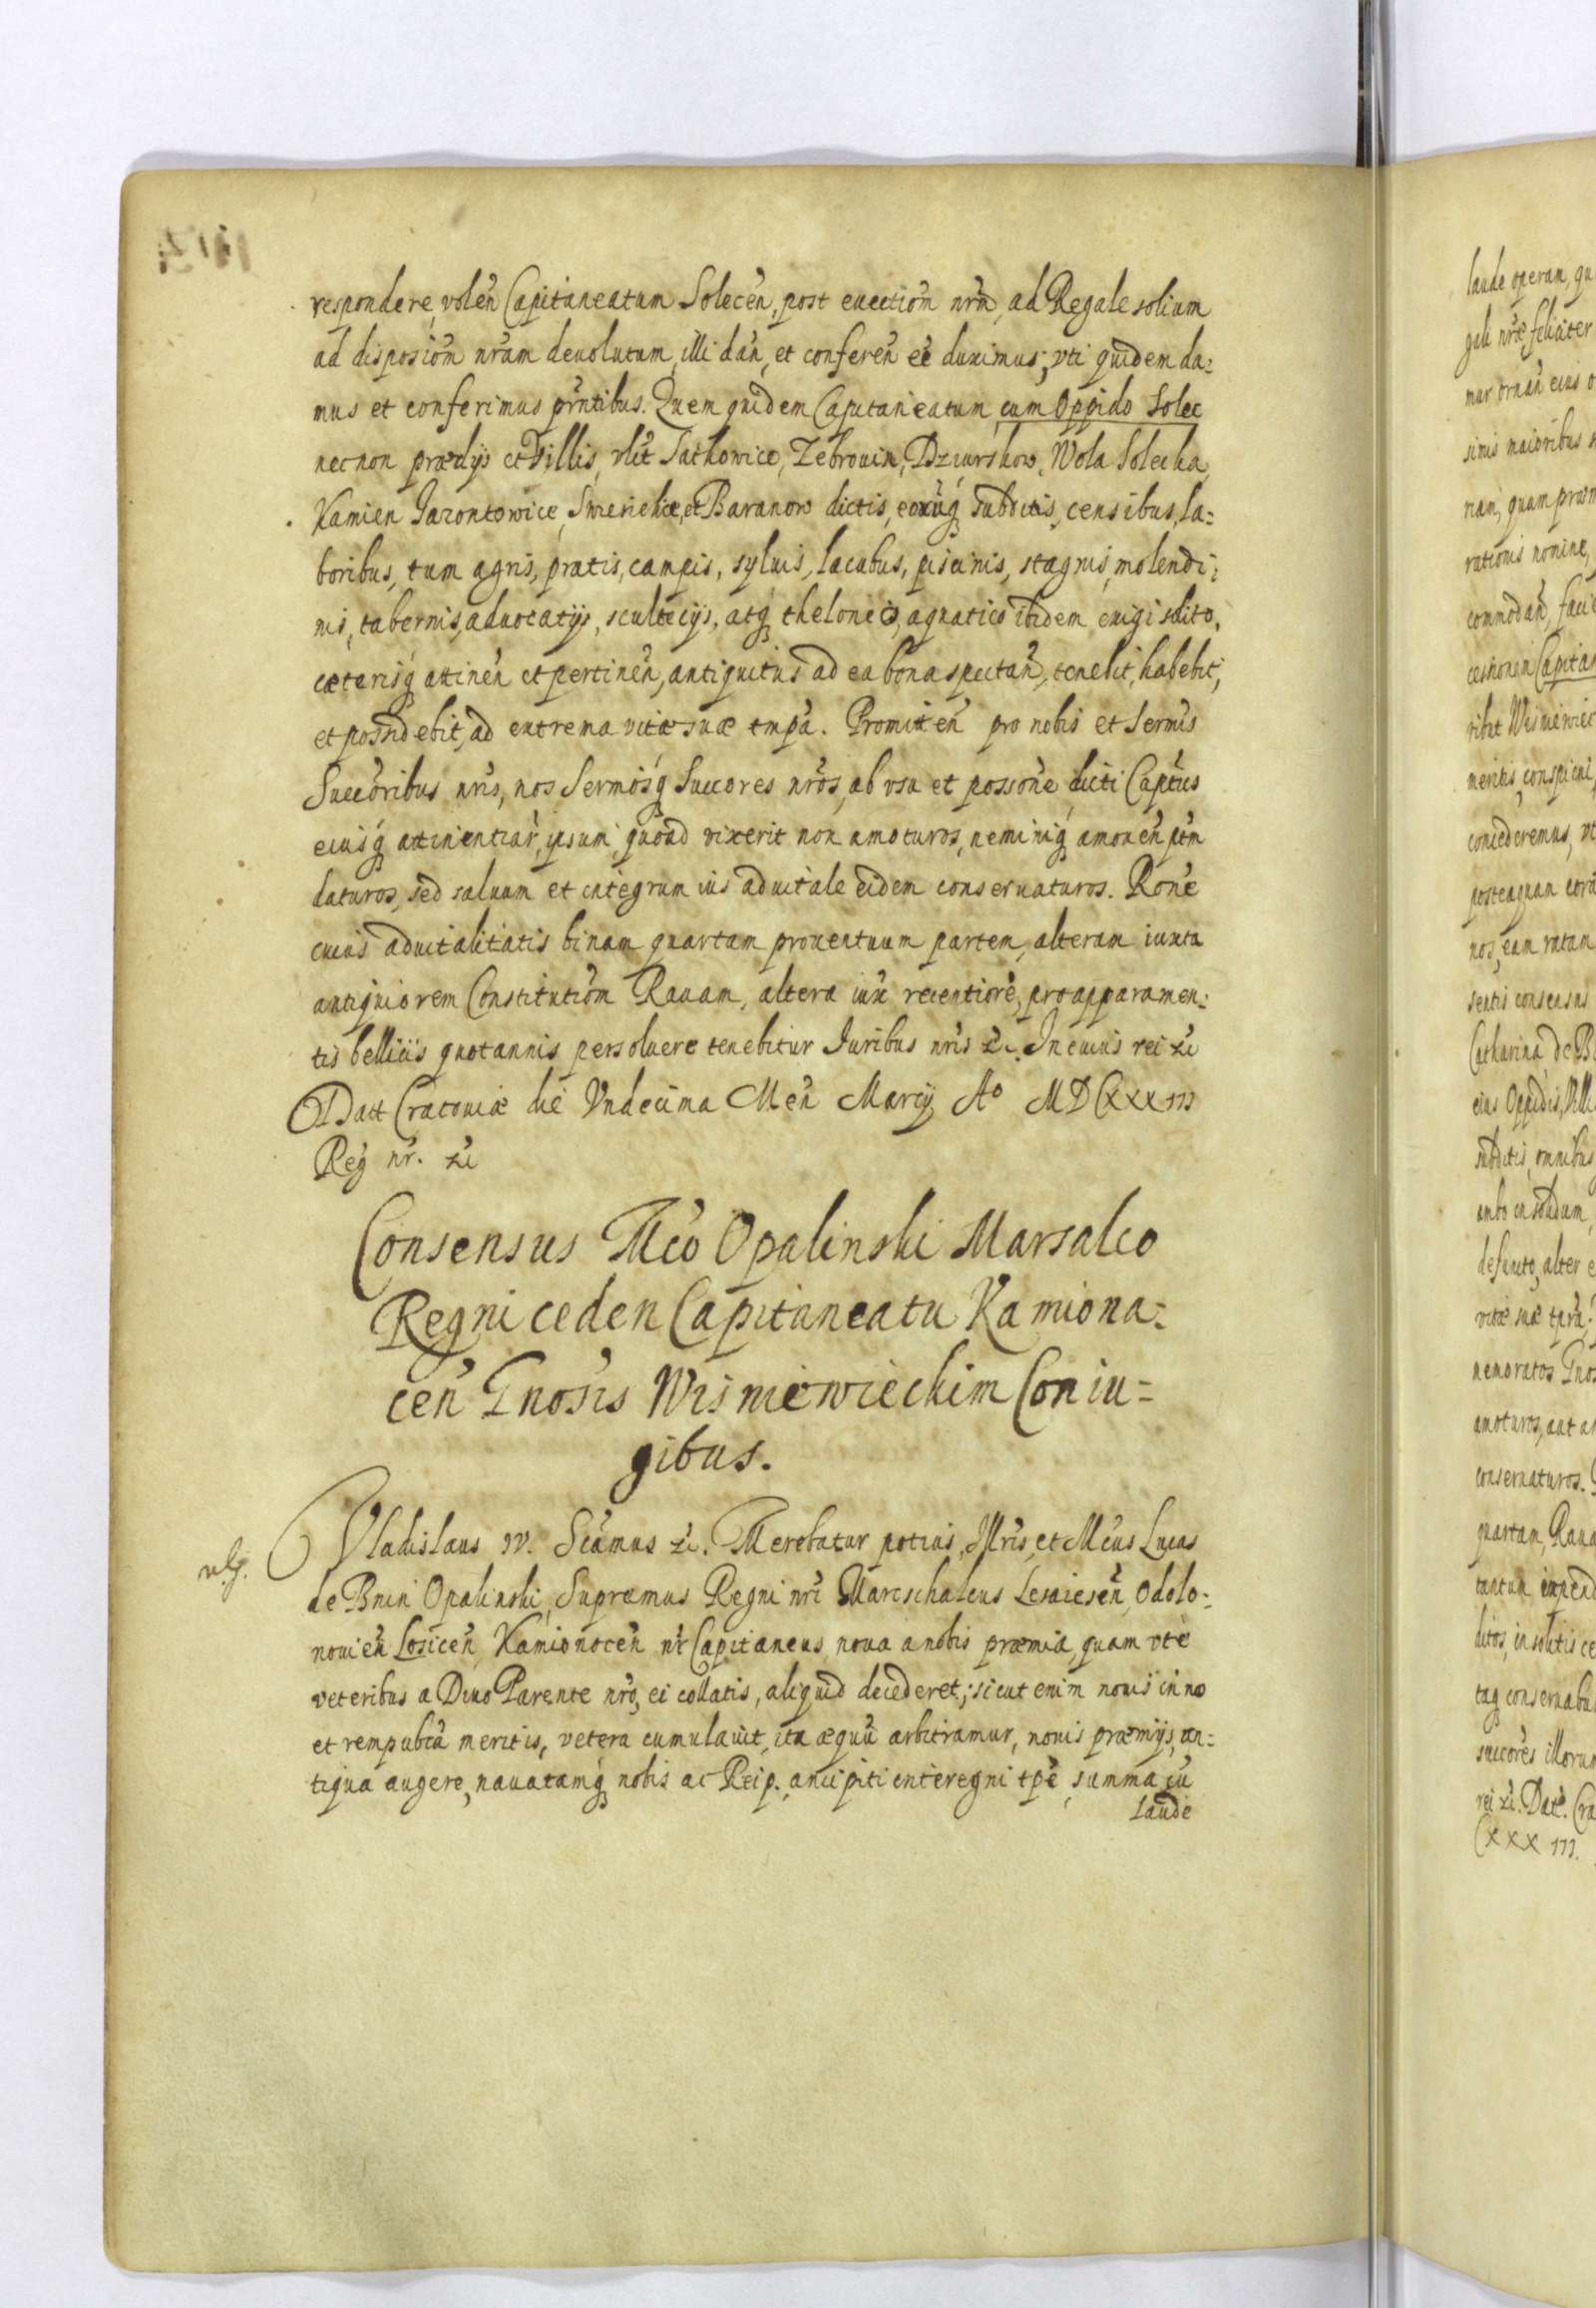 respondere, volen̄ Capitaneatum Solecen̄, post euectiom̄ nr̄m, ad Regale solium
ad disposiom̄ nr̄am deuolutum, illi dan̄, et conferen̄ eē duximus; vti quidem da:
mus et conferimus pn̄tibus. Quem quidem Capitaneatum cum Oppido Solec
nec non prædijs et Villis, vlt Satkowice, Zebrowin, Dziurkow, Wola Solecka,
Kamien Jarontowice, et Baranow dictis, eorūq subditis, censibus, la:
boribus, tum agris, pratis, campis, syluis, lacubus, piscinis, stagnis, molendi:
nis, tabernis, aduocatijs, scultecijs, atq theloneo, aquatico ibidem exigi solito,
cæterisq attinen̄ et pertinen̄, antiquitus ad ea bona spectan̄, tenebit, habebit,
et possidebit, ad extrema vitæ suæ tmpa. Promitten̄ pro nobis et Sermīs
Succōribus nr̄is, nos Sermosq Succores nr̄os, ab vsu et possōne dicti Capttus
eiusq attinentiar̄, ipsum, quoad vixerit non amoturos, neminiq amouen̄ ptm̄
daturos, sed saluum et integrum ius aduitale eidem conseruaturos. Rōne
cuius aduitalitatis binam quartam prouentuum partem, alteram iuxta
antiquiorem Constitutiom̄ Rauam, altera iux̄ recentiorē, pro apparamen:
tis bellicis quotannis persoluere tenebitur Juribus nr̄is zc. In cuius rei zc
Datt Cracouiæ die Vndecima Men̄ Marcij Ao MDCXXXIII
Reg nr̄. zc
Consensus Mco Opalinski Marsalco
Regni ceden Capitaneatu Kamiona:
cen̄ Gnosis Wisniewieckim Coniu=
gibus.
Vladislaus IV. Scāmus zc. Merebatur potius, Illris, et Mcus Lucas
de Bnin Opalinski, Supremus Regni nri Mareschalcus Lesaiesen̄, Odolo:
nouien̄ Losicen̄, Kamionocen̄ nr̄ Capitaneus, noua a nobis præmia, quam vt è
veteribus a Diuo Parente nrō, ei collatis, aliquid decederet; sicut enim nouis in no
et rempubcā meritis, vetera cumulauit, ita æquū arbitramur, nouis præmijs, an:
tiqua augere, nauatamq nobis ac Reip., ancipiti interegni tpē, summa cū
laude
laude operam, qu
nræ feliciter
eius o
simis maioribus
riam, quam præm
rationis nomine,
commodan̄, faci
cessionem Capitan
Wisniewiec
meritis, conspicui,
concederemus, vt
posteaquam cora
nos, eam ratam
sentis consensus
Catharina de B
eius Oppidis, Villi
subditis, omnibus
ambo in solidum,
defuncto, alter e
vitæ suæ tpra.
memoratos Gnos
amoturos, aut am
conseruaturos.
quartam, Raua
tantum
bitos, insolitis ce
taq conseruabu
succores illorum
rei zc. Datt. Cra
CXXXIII.